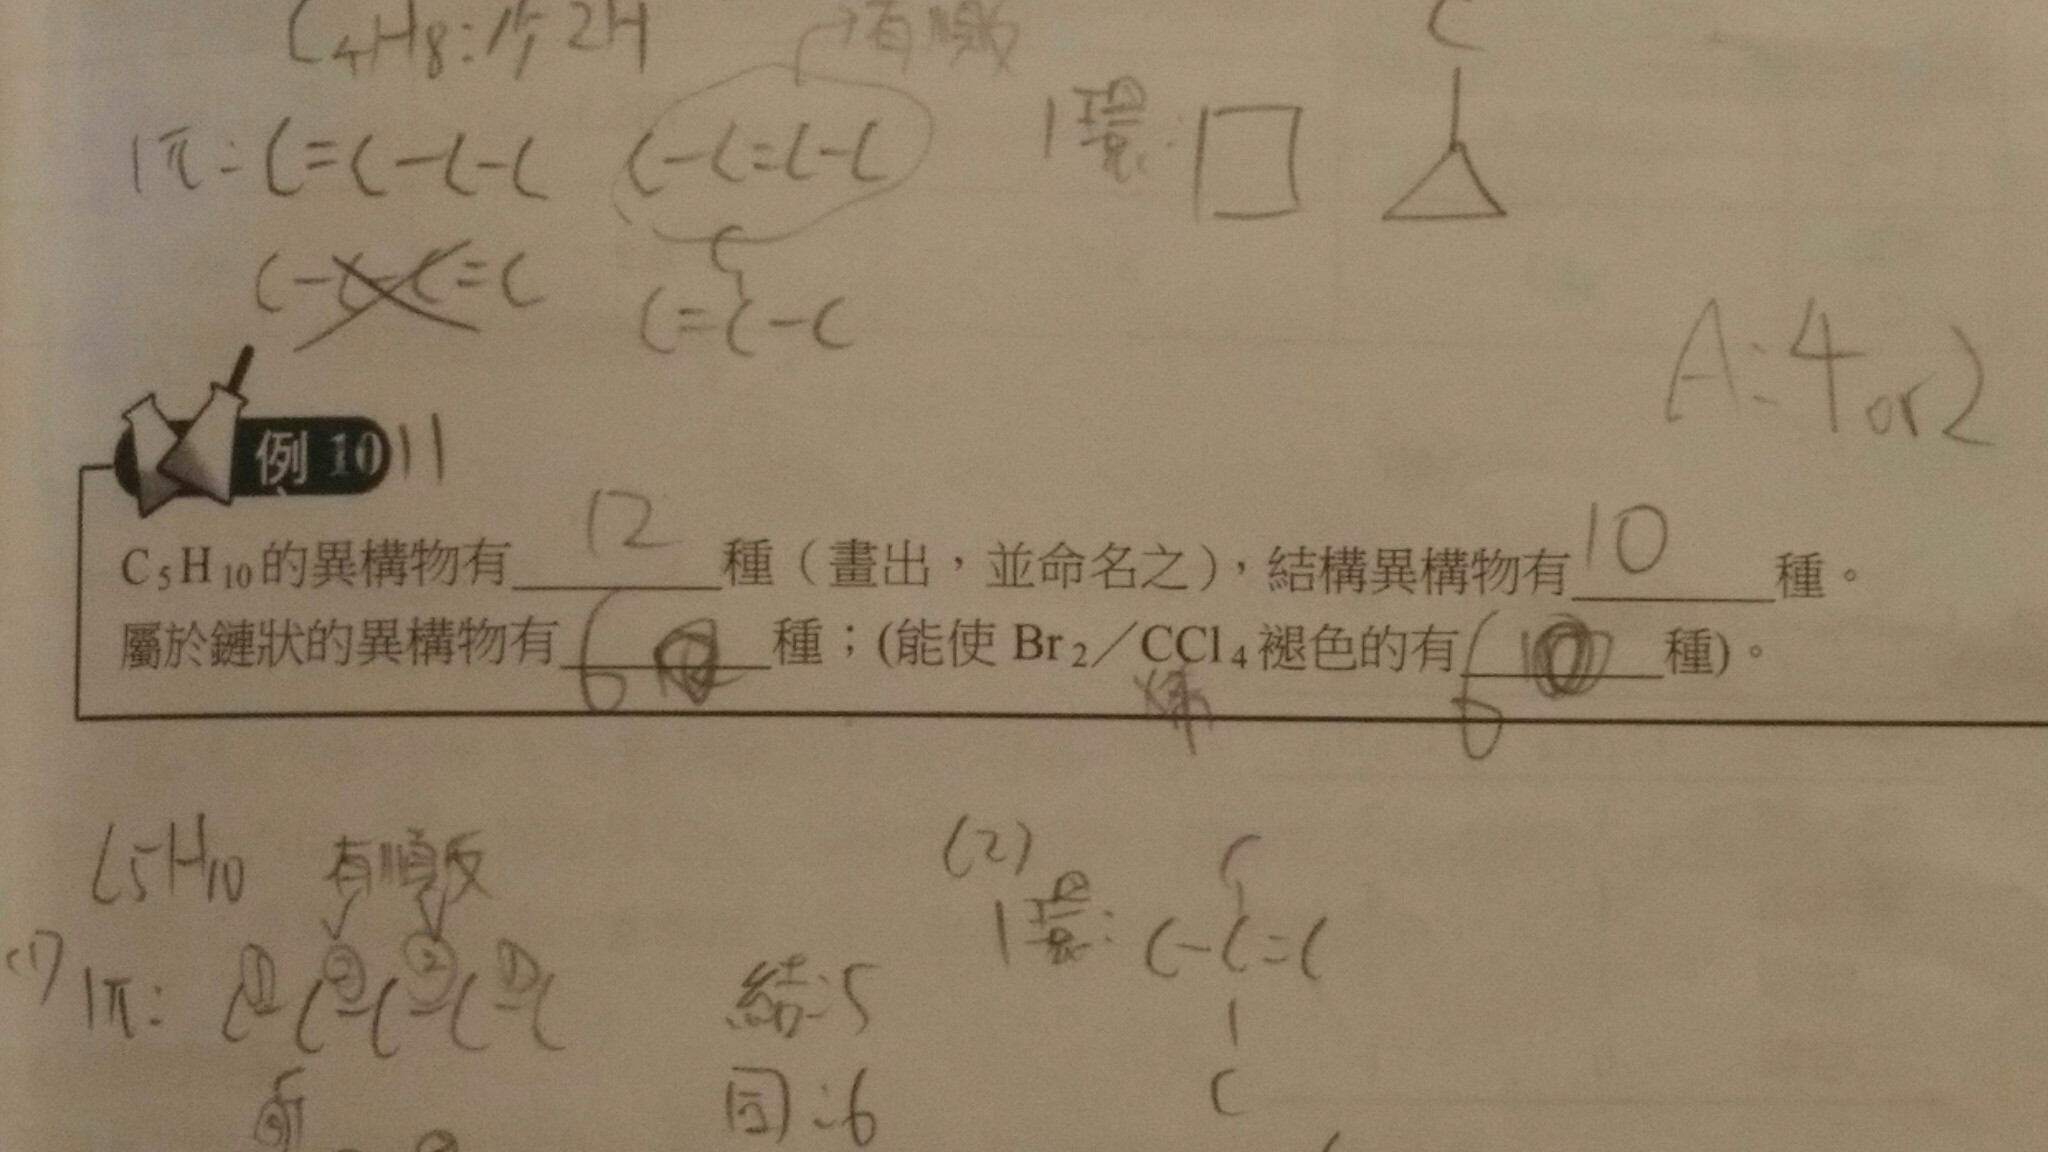 C₄H₈:少2H →有順反
1π: C=C-C-C C-C=C-C 1環: C
C-C-C=C C=C-C C
A:4 or 2
例 10 11
C₅H₁₀的異構物有 12 種（畫出，並命名之），結構異構物有 10 種。
屬於鏈狀的異構物有 6 種；(能使 Br₂／CCl₄褪色的有 6 種)。
烯
C₅H₁₀ 有順反 (2)
(1) 1π: C①C②C②C①C 結:5 1環: C-C=C C C
同:6